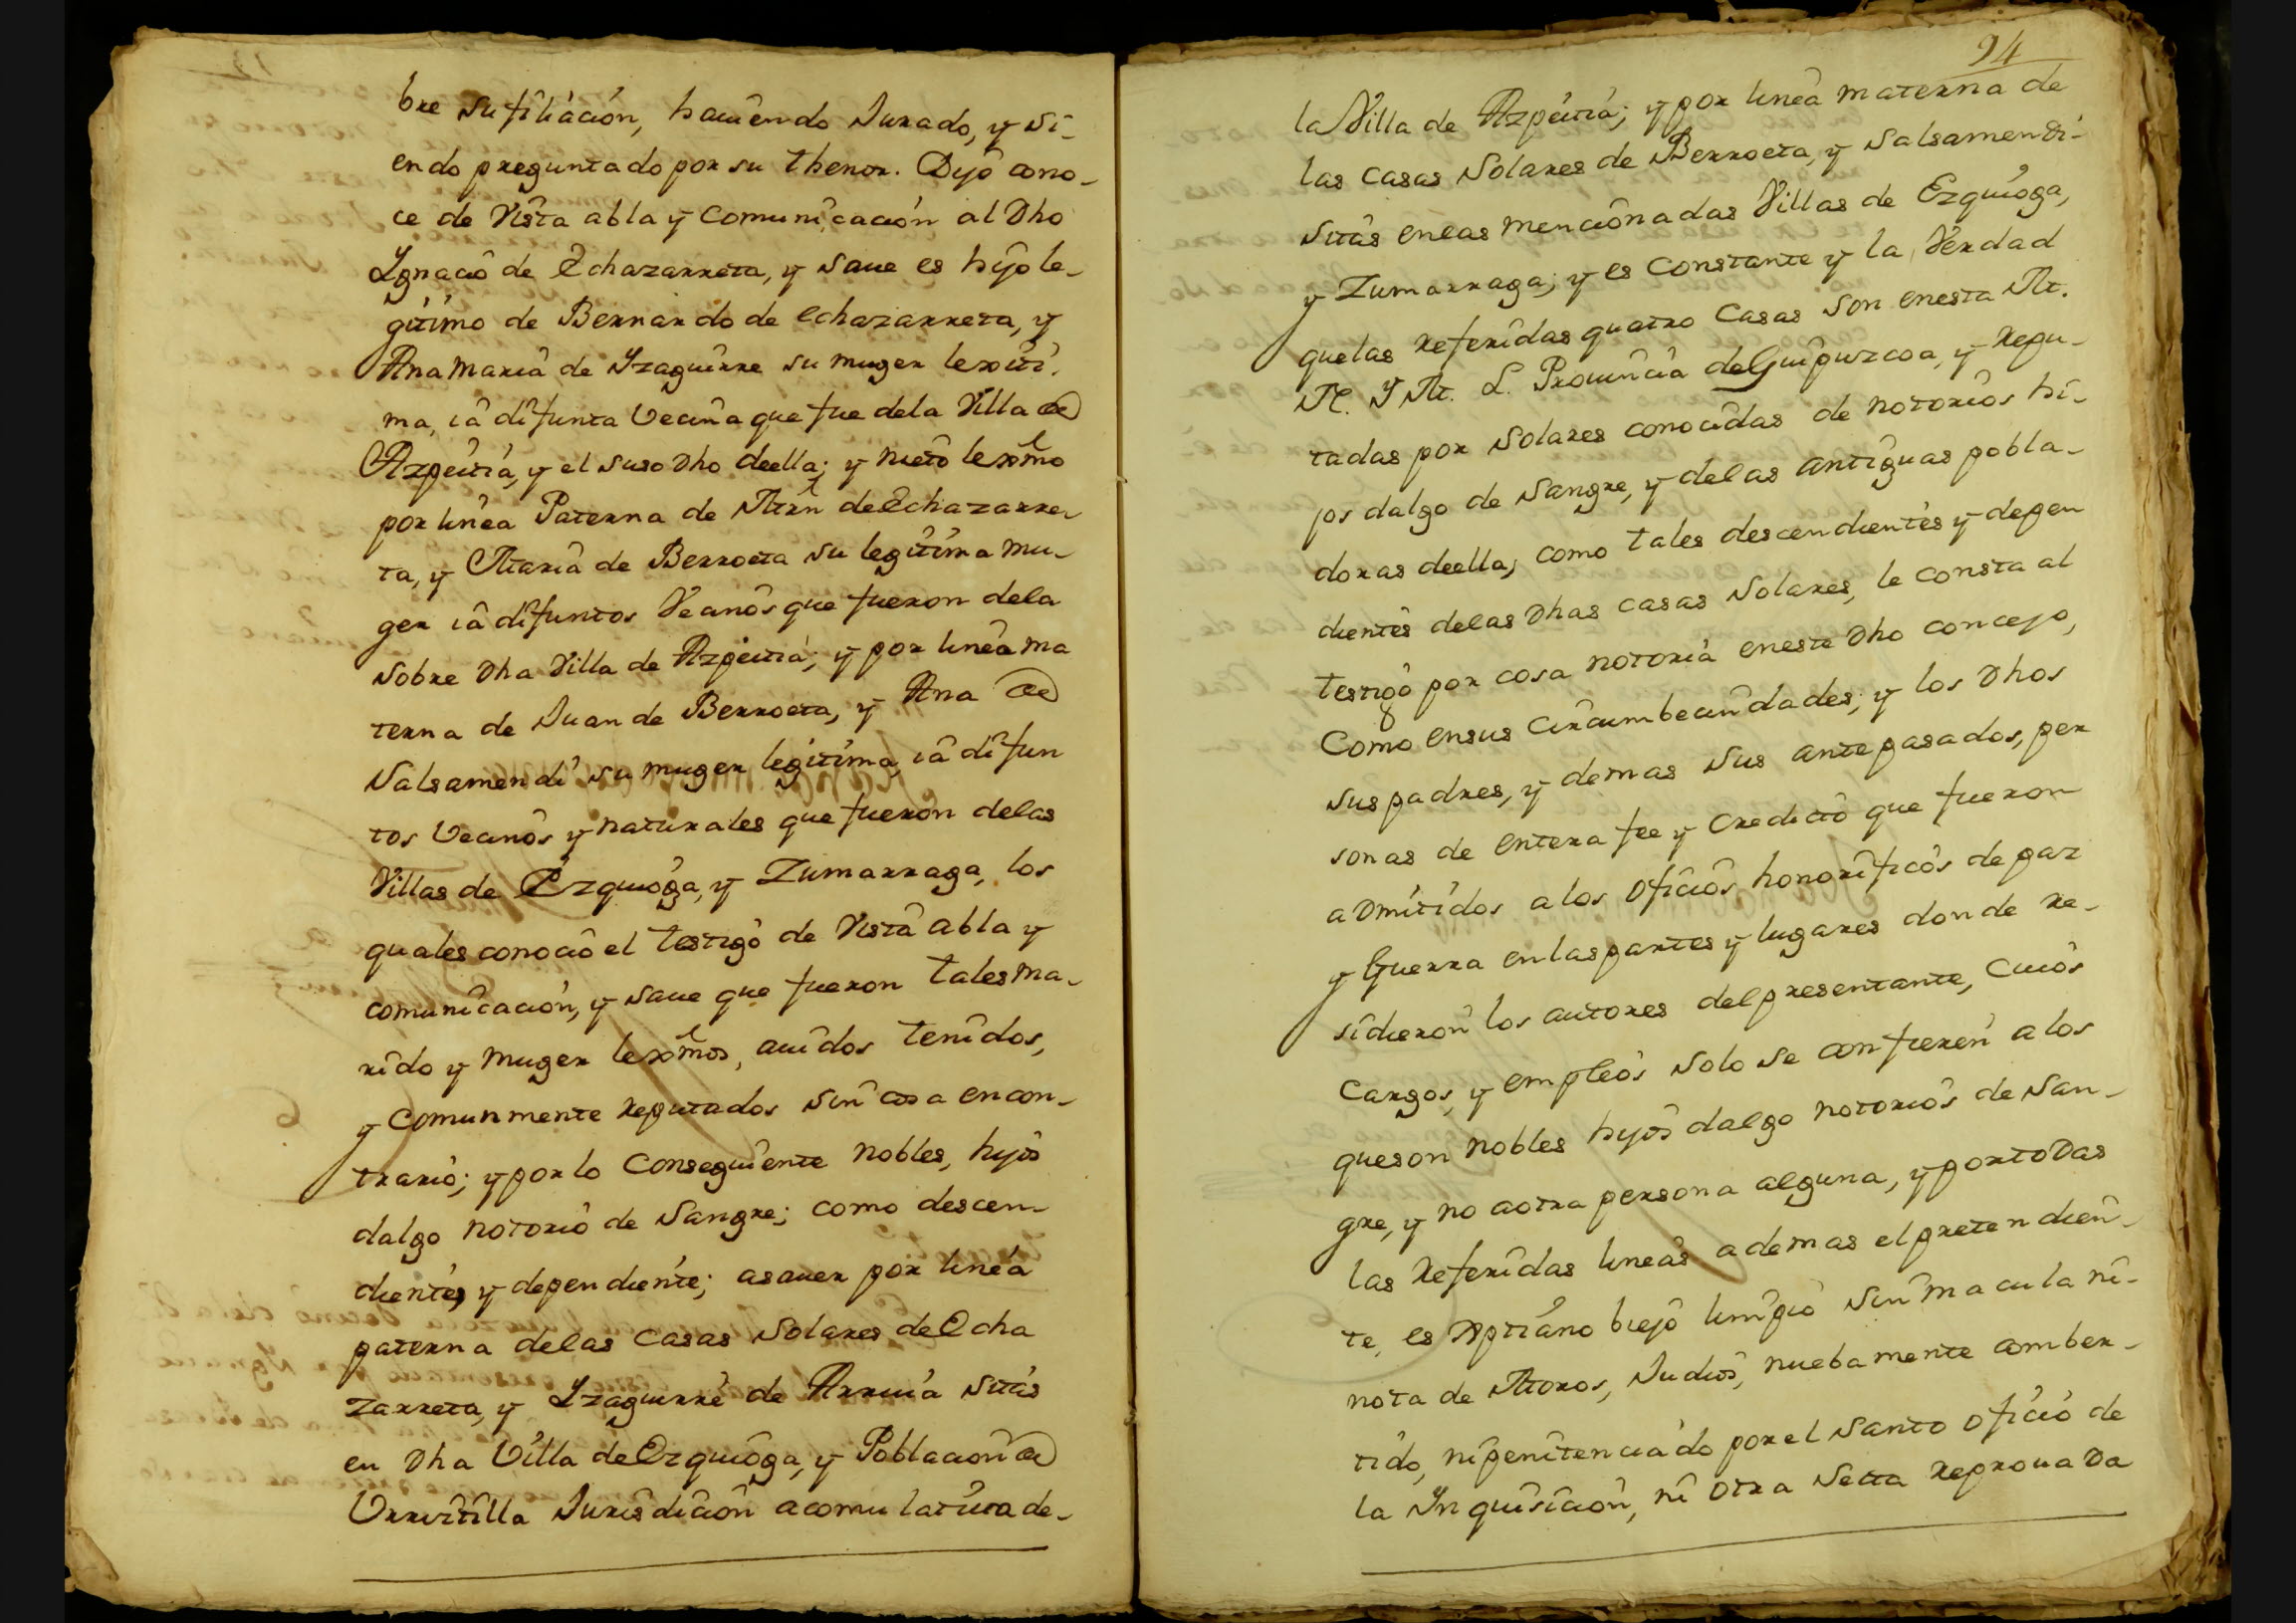 bre su filiación, hauiendo Jurado, y si-
endo preguntado por su thenor. Dijo cono-
ce de Vista abla y Comunicación al Dho
Ygnacio de Echazarreta, y saue es hijo le-
gitimo de Bernardo de echazarreta, y
Ana Maria de Yzaguirre su muger lexiti-
ma, ia difunta Vecina que fue de la Villa de
Azpeitia, y el suso Dho de ella; y nieto lexmo
por linea Paterna de Mrn de Echazarre-
ta, y Maria de Berroeta su legitima mu-
ger ia difuntos Vecinos que fueron de la
sobre Dha Villa de Azpeitia; y por linea ma
terna de Juan de Berroeta, y Ana de
Salsamendi su muger legitima, ia difun
tos Vecinos y naturales que fueron de las
Villas de Ezquioga, y Zumarraga, los
quales conocio el testigo de Vista abla y
comunicación, y saue que fueron tales ma-
rido y muger lexmos, auidos tenidos,
y Comunmente reputados sin cosa en con-
trario; y por lo Conseguiente nobles, hijos
dalgo notorio de Sangre; como descen-
dientes y dependiente; asauer por linea
paterna de las Casas Solares de Echa
zarreta, y Yzaguirre de Arruia sitas
en Dha Villa de Ezquioga, y Poblacion de
Urrietilla Jurisdicion acomulatiua de-
94
la Villa de Azpeitia; y por linea materna de
las Casas Solares de Berroeta, y Salsamendi-
sitas en las mencionadas Villas de Ezquioga,
y Zumarraga; y es Constante y la Verdad
que las referidas quatro Casas son en esta M.
N. Y M. L. Prouincia de Guipuzcoa, y repu-
tadas por Solares conocidas de notorios hi-
jos dalgo de Sangre, y de las antiguas pobla-
doras de ella, como tales descendientes y depen
dientes de las Dhas casas Solares, le consta al
testigo por cosa notoria en este Dho concejo,
Como en sus circumbecindades; y los Dhos
sus padres, y demas sus antepasados, per
sonas de entera fee y Credicto que fueron
aDmitidos a los oficios honorificos de paz
y Guerra en las partes y lugares donde re-
sidieron los autores del presentante, Cuios
Cargos, y empleos solo se confieren a los
que son nobles hijos dalgo notorios de San-
gre, y no a otra persona alguna, y por toDas
las referidas lineas ademas el pretendien-
te, es Xptiano biejo limpio sin macula ni-
nota de Moros, Judios, nuebamente comber-
tido, ni penitenciado por el Santo oficio de
la Inquisicion, ni otra Secta reprouaDa